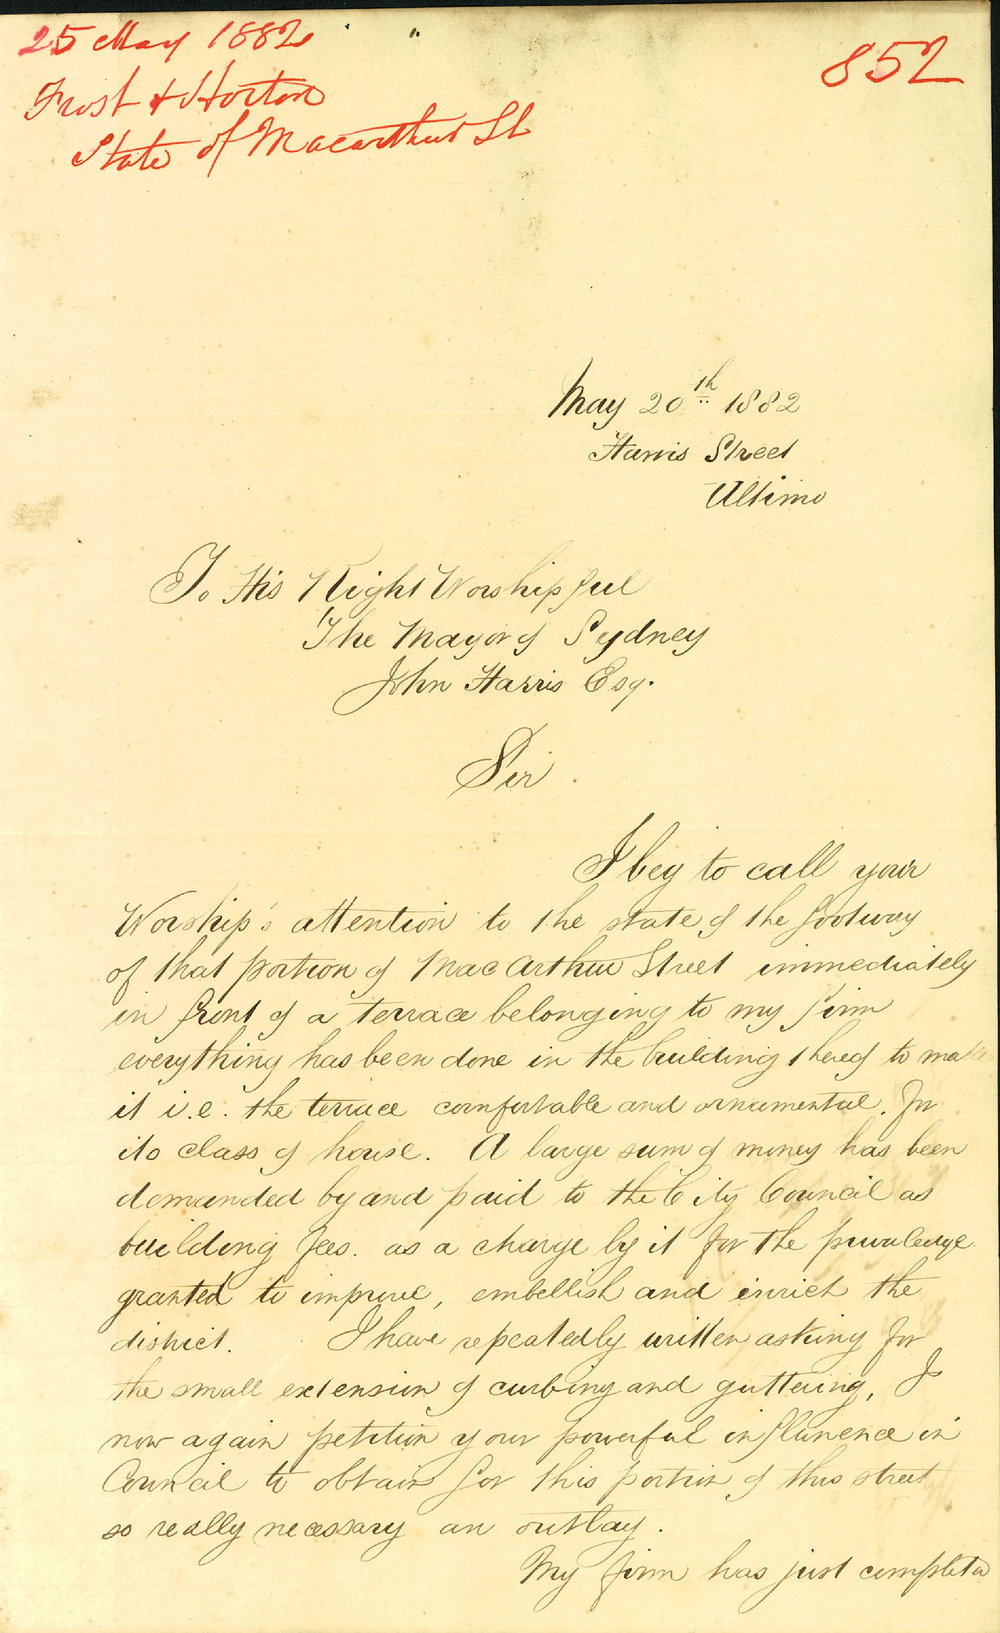 25 May 1882
852
Frost & Horton
State of Macarthur St
May 20th 1882
Harris Street
Ultimo
To His Right Worshipful
The Mayor of Sydney
John Harris Esq.
Sir
I beg to call your
Worship's attention to the state of the footway
of that portion of MacArthur Street immediately
in front of a terrace belonging to my firm
everything has been done in the building thereof to make
it i.e. the terrace comfortable and ornamental. for
its class of house. A large sum of money has been
demanded by and paid to the City Council as
building fees. as a charge by it for the priviledge
granted to improve, embellish and enrich the
district. I have repeatedly written asking for
the small extension of curbing and guttering, I
now again petition your powerful influnence in
Council to obtain for this portion of this street
so really necessary an outlay.
My firm has just completed